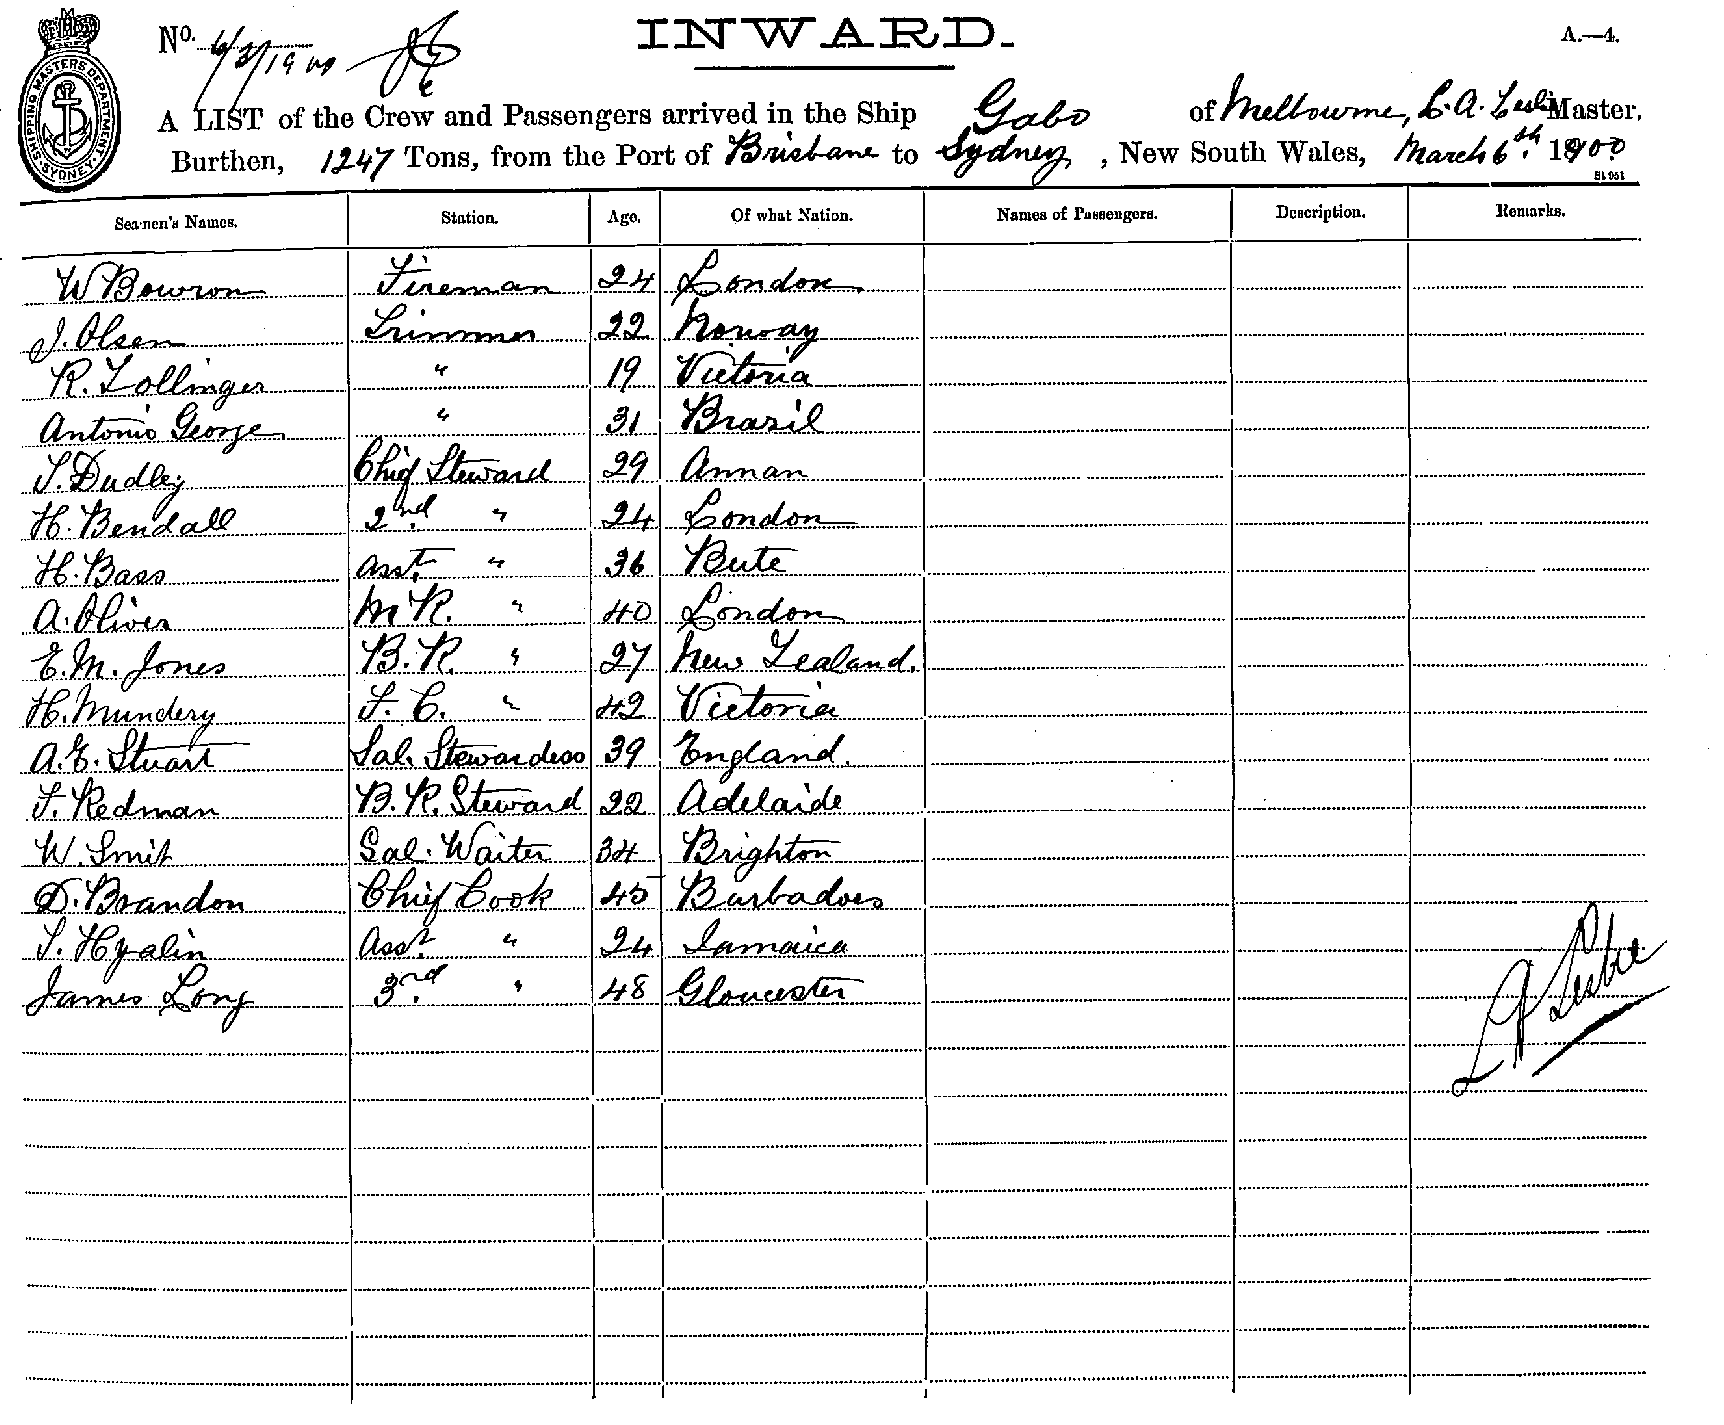 SHIPPING MASTERS DEPARTMENT. SYDNEY.
No. 6/3/1900
INWARD.
A.—4.
A LIST of the Crew and Passengers arrived in the Ship Gabo of Melbourne, L.A. Leslie Master,
Burthen, 1247 Tons, from the Port of Brisbane to Sydney, New South Wales, March 6th 1900
Seamen's Names. Station. Age. Of what Nation. Names of Passengers. Description. Remarks.
W Bowron Fireman 24 London
J. Olsen Trimmer 22 Norway
R. Zollinger " 19 Victoria
Antonio George " 31 Brazil
T. Dudley Chief Steward 29 Annan
H. Bendall 2nd " 24 London
H. Bass Asst. " 36 Bute
A. Oliver M R. " 40 London
E. M. Jones B. R. " 27 New Zealand.
H. Mundery F. C. " 42 Victoria
A. E. Stuart Sal. Stewardess 39 England.
F. Redman B. R. Steward 22 Adelaide
W. Smit Sal. Waiter 34 Brighton
D. Brandon Chief Cook 45 Barbadoes
S. Hyalin Asst. " 24 Jamaica
James Long 3rd. " 48 Gloucester
L A Leslie